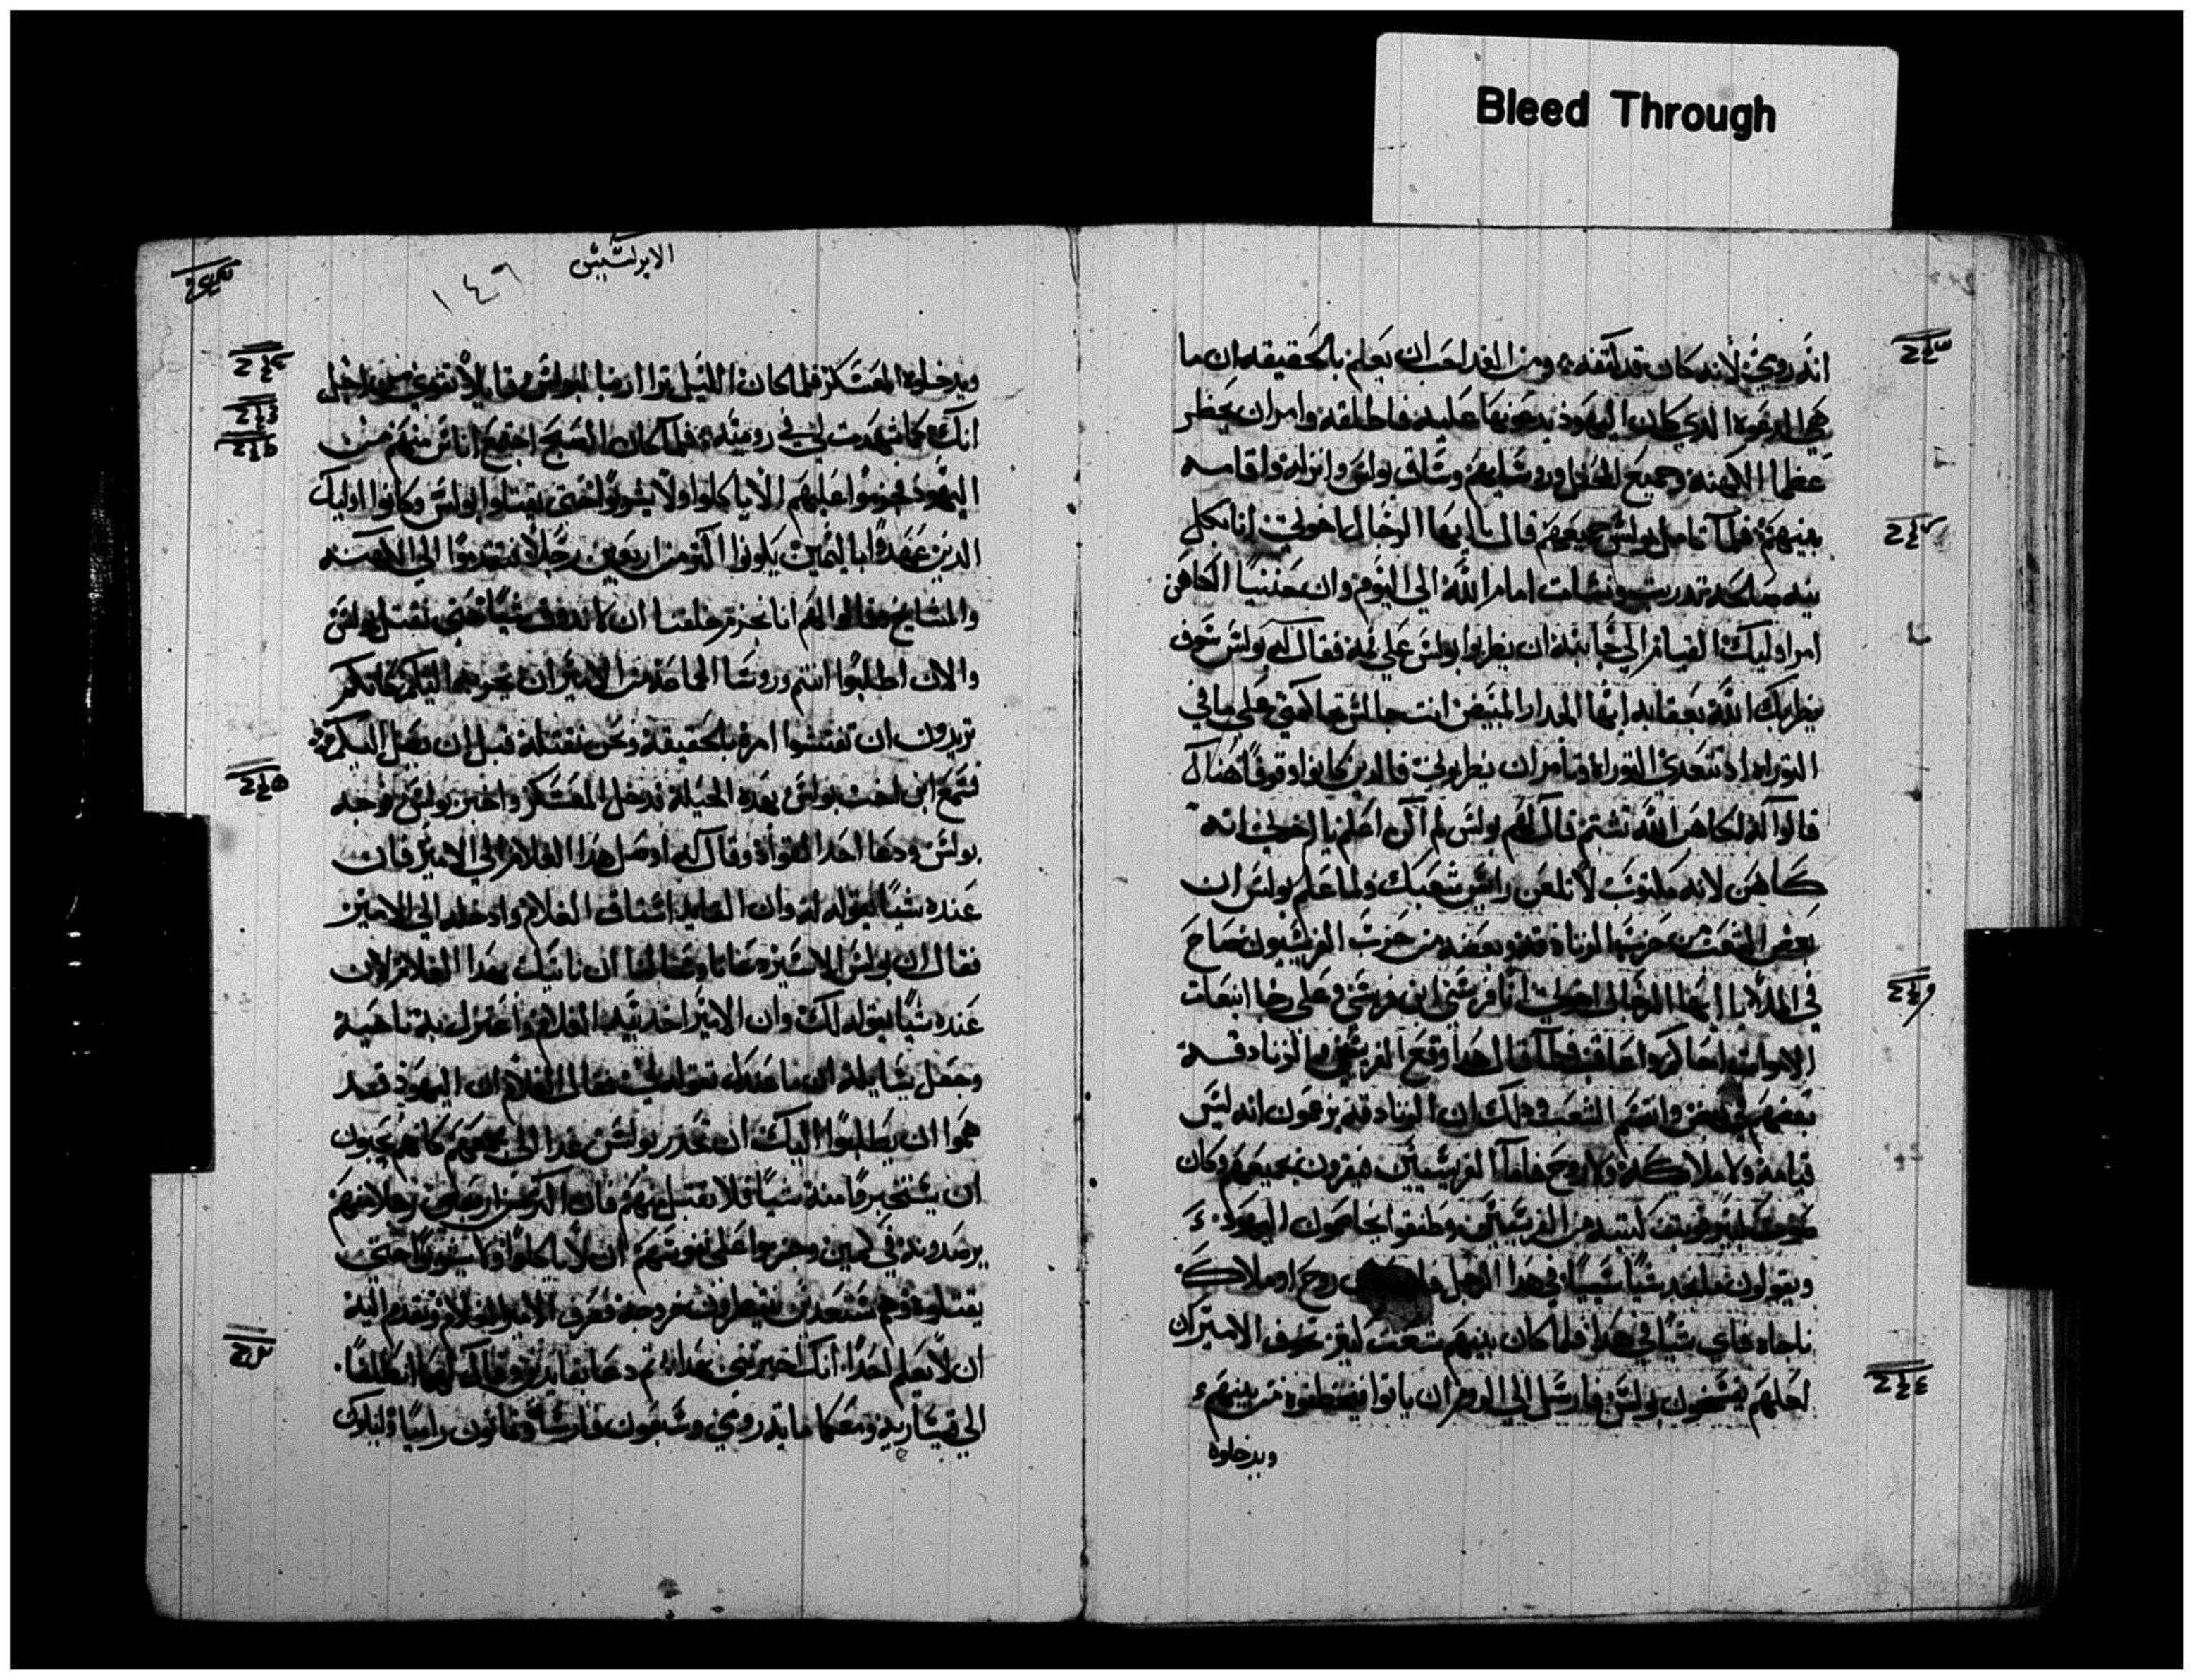 Bleed Through
انه رومي لانه كان قد كتفه ومن الغد احب ان يعلم بالحقيقه ان ما
هي الدعوه الدي كان اليهود يدعونها عليه فاطلقه وامر ان يحظر
عظما الكهنه وجميع المحفل اورشليم وساق بولس وانزله واقامه
بينهم فلما تامل بولس جميعهم قال يا ايها الرجال اخوتي انا بكل
نيه صالحه تدربت ونشات امام الله الي اليوم وان حننيا الكاهن
امر اوليك القيام الي جانبه ان يضربوا بولس علي فمه فقال له بولس سوف
يضربك الله بعقابه ايها الجدار المبيض انت جالس تحاكمني علي ما في
التوراه اد تتعدي التوراه وتامر ان يضربوني فالدين كانوا وقوفا هناك
قالوا له لكاهن الله تشتم قال لهم بولس لم اكن اعلم يا اخوتي انه
كاهن لانه مكتوب لا تلعن رايس شعبك ولما علم بولس ان
بعض الشعب من حزب الزنادقه وبعضه من حزب الفريسيون صاح
في الملا يا ايها الرجال اخوتي انا فريسي ابن فريسي وعلي رجا انبعات
الاموات احاكم واعاقب فلما قال هدا وقع الفريسيين والزنادقه
بعضهم في بعض وانقسم الشعب ودلك ان الزنادقه يزعمون انه ليس
قيامه ولا ملاكه ولا روح فاما الفريسيين فيقرون بجميعهم وكان
صوت كبير فوتب كتبه من الفريسيين وطفقوا يخاصمون اليهود
ويقولون ما نجد شيا سييا في هدا الرجل روح او ملاك
ناجاه فاي شيا في هدا فلما كان بينهم شغب كبير تخوف الامير ان
لعلهم يفسخون بولس فارسل الي الروم ان ياتوا فيخطفوه من بينهم
ويدخلوه
الابركسيس
١٤٦
ويدخلوه المعسكر فلما كان الليل ترااا ربنا لبولس وقايلا تقوي من اجل
انك كما شهدت لي في روميه فلما كان الصبح اجتمع اناس منهم من
اليهود فحرموا عليهم الا ياكلوا ولا يشربوا حتي يقتلوا بولس وكانوا اوليك
الدين عهدوا باليمين يكونوا اكتر من اربعين رجلا فتقدموا الي الكهنه
والمشايخ وقالوا لهم انا بحرم حلفنا ان لا ندوق شيا حتي نقتل بولس
والان اطلبوا انتم وروسا الجماعه من الامير ان يخرجه اليكم كانكم
تريدون ان تفتشوا امره بالحقيقه ونحن نقتله قبل ان يصل اليكم
فسمع ابن اخت بولس بهده الحيله فدخل المعسكر واخبر بولس فوجه
بولس ودعا احد القواد وقال له اوصل هدا الغلام الي الامير فان
عنده شيا يقوله له وان القايد استاق الغلام وادخله الي الامير
فقال ان بولس الاسير دعانا وسالنا ان ناتيك بهدا الغلام لان
عنده شيا يقوله لك وان الامير اخد بيد الغلام واعتزل به ناحيه
وجعل يسايله ان ما عندك تقوله لي فقال الغلام ان اليهود قد
هموا ان يطلبوا اليك ان تحدر بولس غدا الي مجمعهم كانهم يحبون
ان يستخبروا منه شيا فلا تقبل منهم فان اكتر من اربعين رجلا منهم
يرصدونه في كمين وحرموا علي نفوسهم ان لا ياكلوا ولا يشربوا حتي
يقتلوه وهم مستعدين ينتظرون خروجه فصرف الامير الغلام وتقدم اليه
ان لا يعلم احدا انك اخبرتني بهدا تم دعا بقايدين وقال لهما انطلقا
الي قيساريه ومعكما مايه رومي وسبعون فارسا وتمانون راميا وليكون